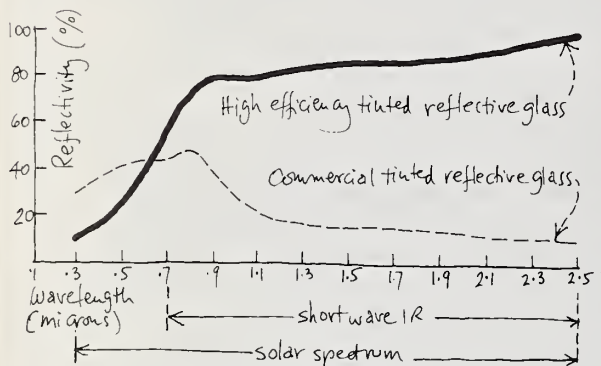 100
80
60
40
20
Reflectivity (%)
High efficiency tinted reflective glass
Commercial tinted reflective glass
.1 .3 .5 .7 .9 1.1 1.3 1.5 1.7 1.9 2.1 2.3 2.5
Wavelength
(microns)
short wave IR
solar spectrum